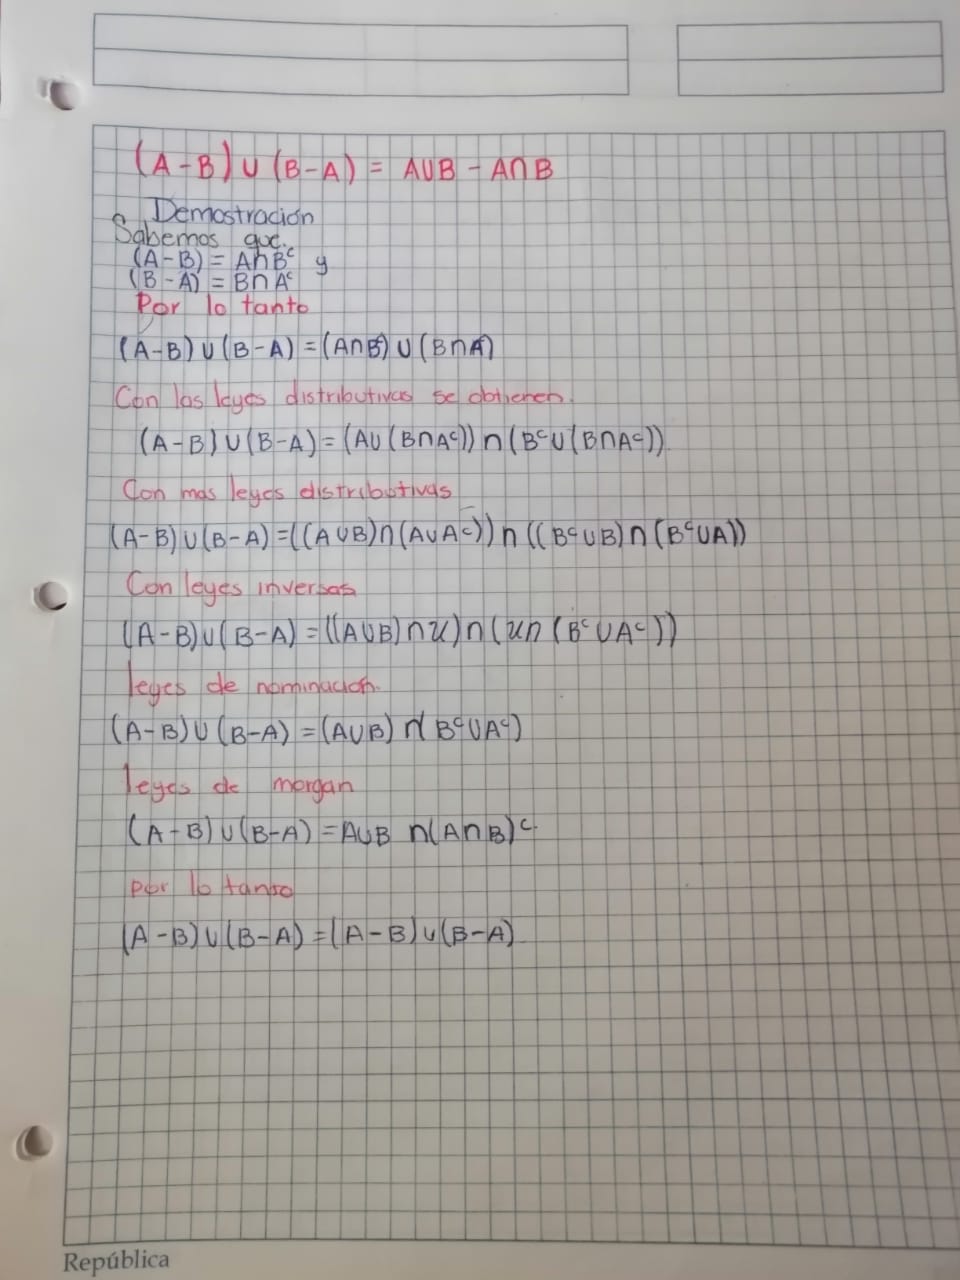 (A-B) ∪ (B-A) = A∪B - A∩B
Demostración
Sabemos que.
(A-B) = A∩Bᶜ y
(B-A) = B∩Aᶜ
Por lo tanto
(A-B) ∪ (B-A) = (A∩Bᶜ) ∪ (B∩Aᶜ)
Con las leyes distributivas se obtienen.
(A-B) ∪ (B-A) = (A∪(B∩Aᶜ)) ∩ (Bᶜ∪(B∩Aᶜ))
Con mas leyes distributivas
(A-B) ∪ (B-A) = ((A∪B)∩(A∪Aᶜ)) ∩ ((Bᶜ∪B)∩(Bᶜ∪A))
Con leyes inversas
(A-B) ∪ (B-A) = ((A∪B)∩U) ∩ (U∩(Bᶜ∪Aᶜ))
leyes de nominación.
(A-B) ∪ (B-A) = (A∪B) ∩ (Bᶜ∪Aᶜ)
leyes de morgan
(A-B) ∪ (B-A) = A∪B ∩(A∩B)ᶜ.
por lo tanso
(A-B) ∪ (B-A) = (A-B) ∪ (B-A)
República